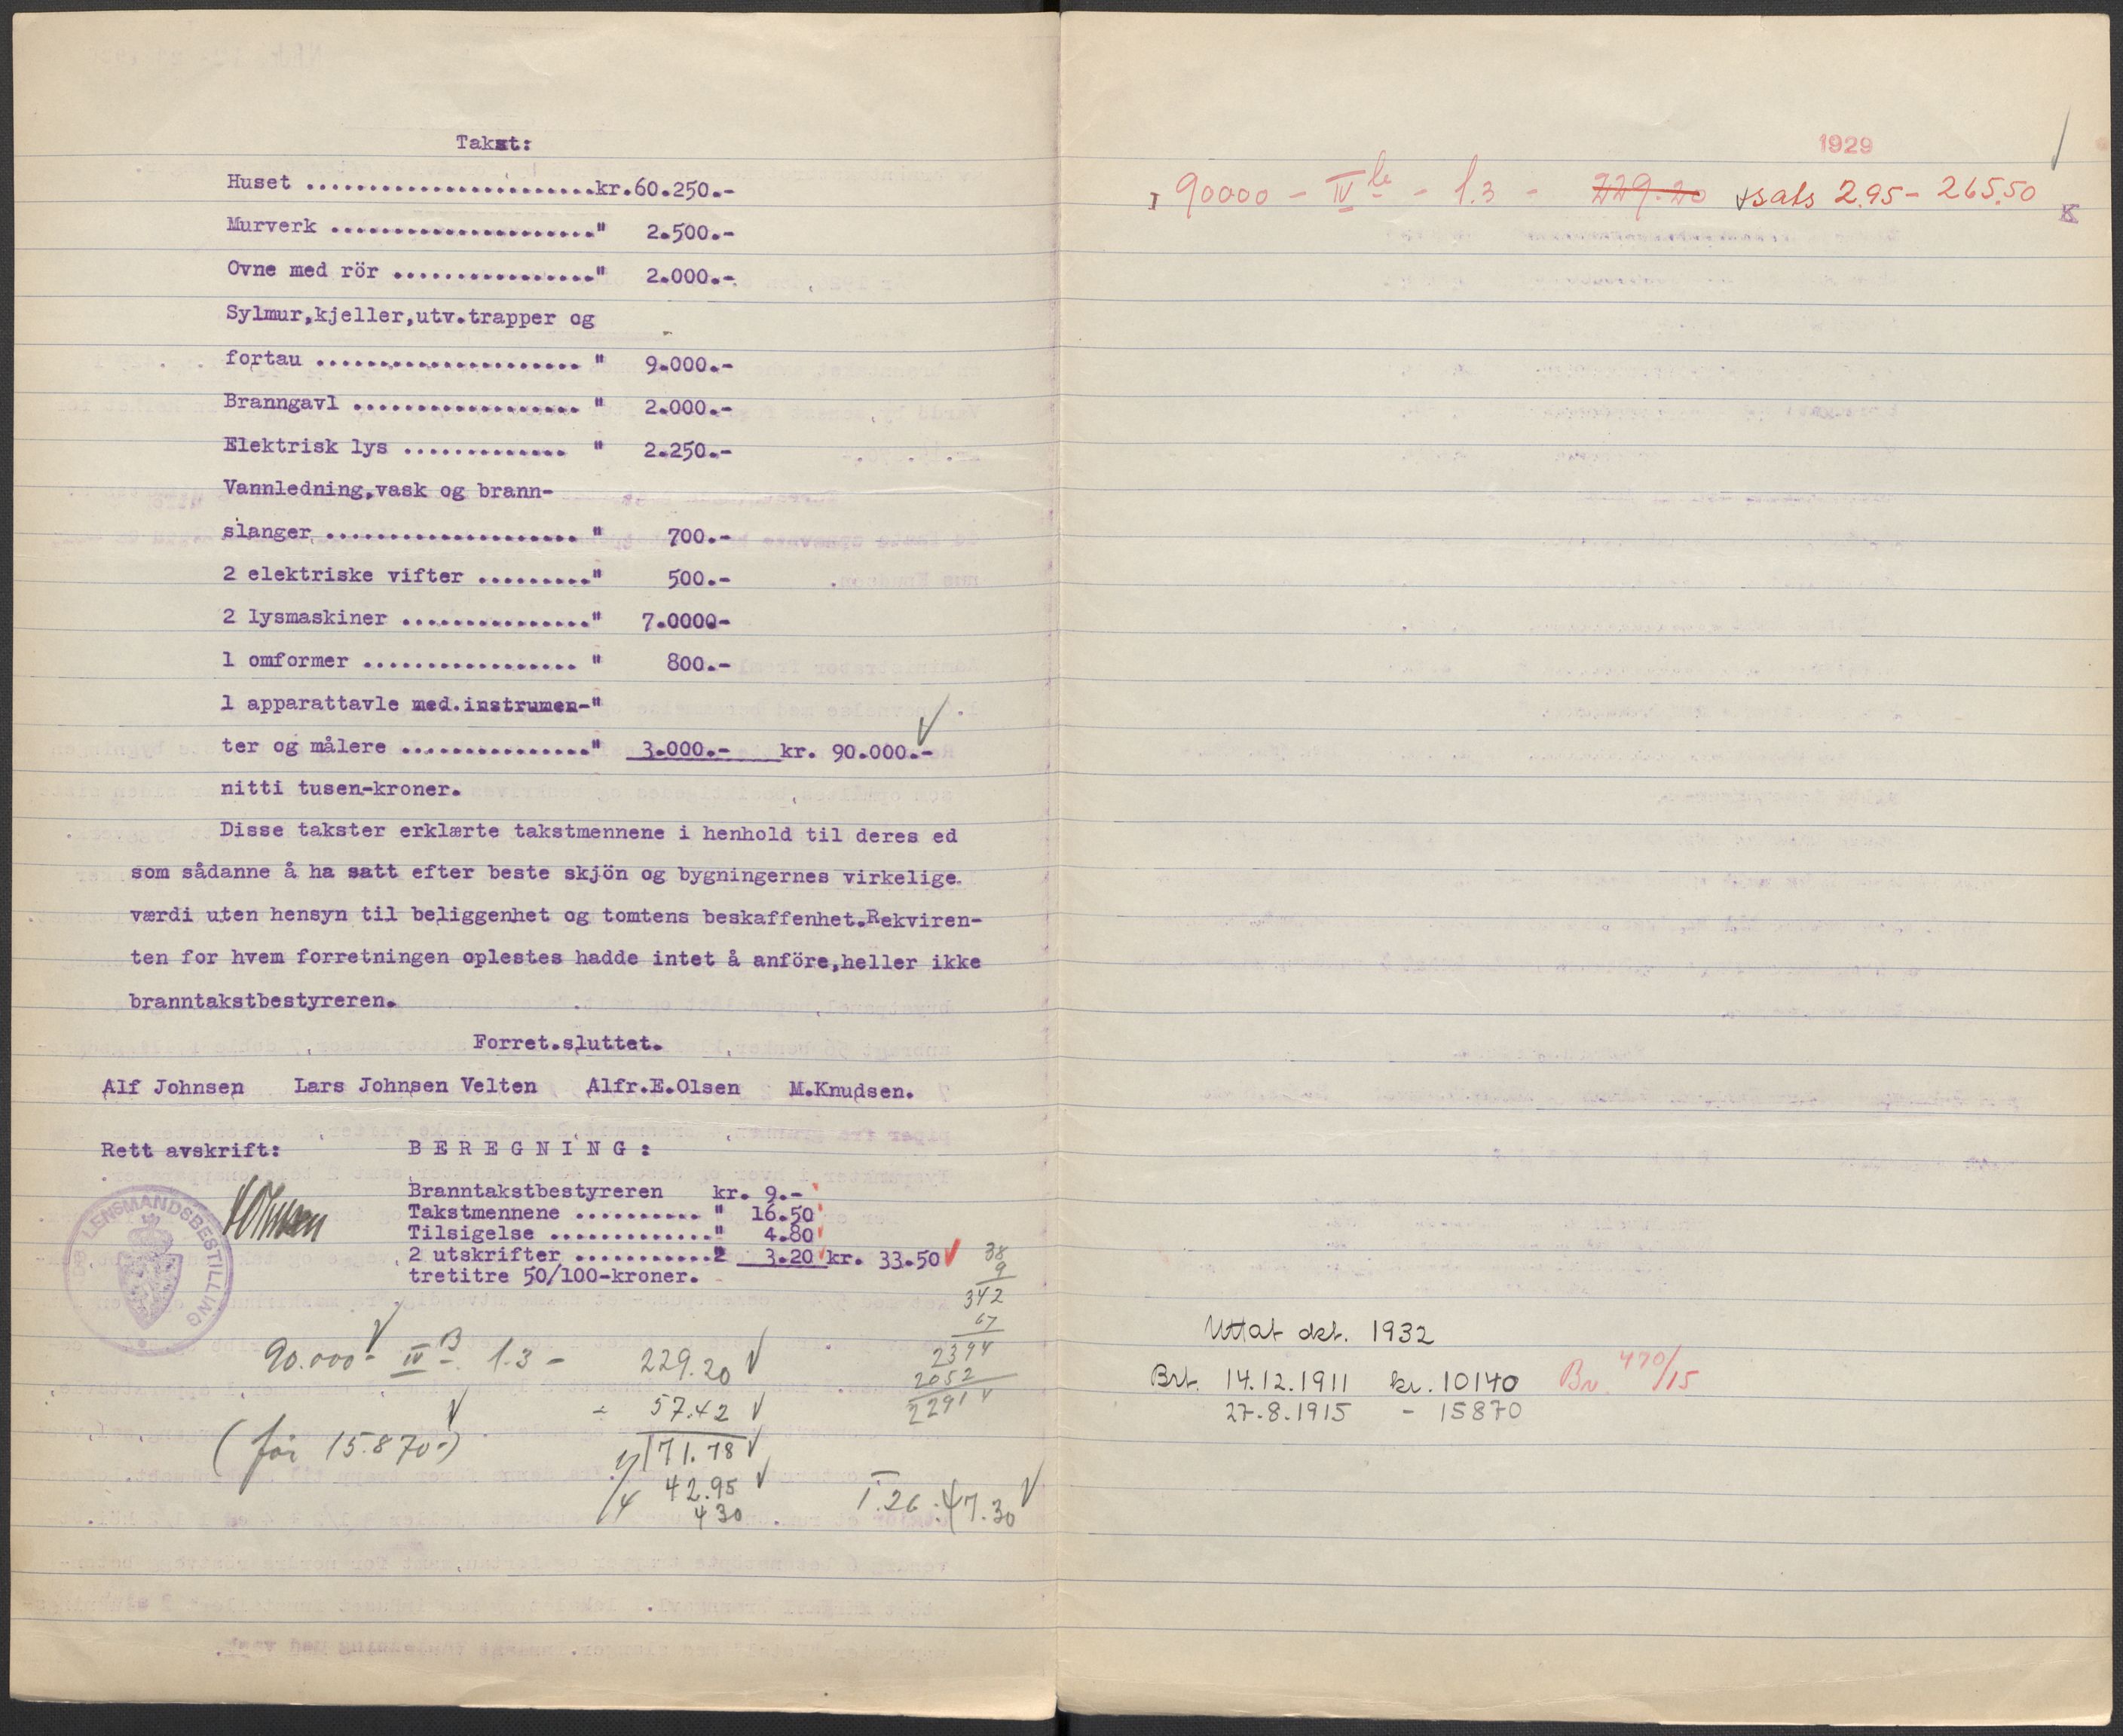 Takst:
Huset .......................kr.60.250.-
Murverk ....................." 2.500.-
Ovne med rör ................" 2.000.-
Sylmur,kjeller,utv.trapper og
fortau ..................... " 9.000.-
Branngavl .................. " 2.000.-
Elektrisk lys ............. " 2.250.-
Vannledning,vask og brann-
slanger .................... " 700.-
2 elektriske vifter ........." 500.-
2 lysmaskiner ..............." 7.0000-
1 omformer ................. " 800.-
1 apparattavle med.instrumen-"
ter og målere ..............." 3.000.- kr. 90.000.-
nitti tusen-kroner.
Disse takster erklærte takstmennene i henhold til deres ed
som sådanne å ha satt efter beste skjön og bygningernes virkelige.
værdi uten hensyn til beliggenhet og tomtens beskaffenhet.Rekviren-
ten for hvem forretningen oplestes hadde intet å anföre,heller ikke
branntakstbestyreren.
Forret.sluttet.
Alf Johnsen Lars Johnsen Velten Alfr.E.Olsen M.Knudsen.
Rett avskrift: BEREGNING:
Branntakstbestyreren kr. 9.-
Takstmennene .......... " 16.50
Tilsigelse ............." 4.80
2 utskrifter ..........." 3.20 kr. 33.50
tretitre 50/100-kroner.
LENSMANDSBESTILLING
38
9
342
67
2394
2052
22914
90.000- IV B 1.3 - 229.20
- 57.42
(för 15.870-) 171.78
1/4 42.95
430
1.26. 47.30
1929
I 90000 - IV b - 1.3 - 229.20 sats 2.95 - 265.50
K
Uttat okt. 1932
Brt. 14.12.1911 kr. 10140 Br. 470/15
27.8.1915 - 15870